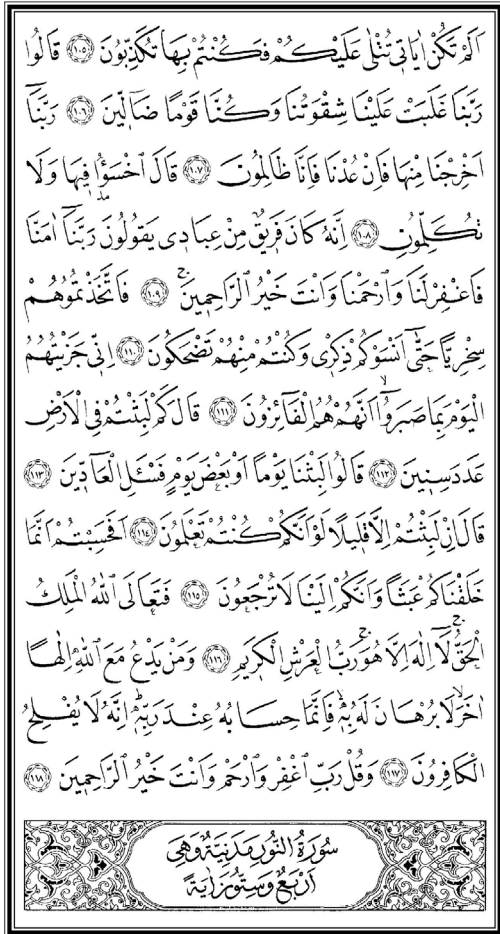 اَلَمْ تَكُنْ اٰيَاتٖى تُتْلٰى عَلَيْكُمْ فَكُنْتُمْ بِهَا تُكَذِّبُونَ ﴿١٠٥﴾ قَالُوا
رَبَّنَا غَلَبَتْ عَلَيْنَا شِقْوَتُنَا وَكُنَّا قَوْمًا ضَٓالّٖينَ ﴿١٠٦﴾ رَبَّنَٓا
اَخْرِجْنَا مِنْهَا فَاِنْ عُدْنَا فَاِنَّا ظَالِمُونَ ﴿١٠٧﴾ قَالَ اخْسَؤُ۫ا فٖيهَا وَلَا
تُكَلِّمُونِ ﴿١٠٨﴾ اِنَّهُ كَانَ فَرٖيقٌ مِنْ عِبَادٖى يَقُولُونَ رَبَّنَٓا اٰمَنَّا
فَاغْفِرْ لَنَا وَارْحَمْنَا وَاَنْتَ خَيْرُ الرَّاحِمٖينَۚ ﴿١٠٩﴾ فَاتَّخَذْتُمُوهُمْ
سِخْرِيًّا حَتّٰٓى اَنْسَوْكُمْ ذِكْرٖى وَكُنْتُمْ مِنْهُمْ تَضْحَكُونَ ﴿١١٠﴾ اِنّٖى جَزَيْتُهُمُ
الْيَوْمَ بِمَا صَبَرُٓواۙ اَنَّهُمْ هُمُ الْفَٓائِزُونَ ﴿١١١﴾ قَالَ كَمْ لَبِثْتُمْ فِى الْاَرْضِ
عَدَدَ سِنٖينَ ﴿١١٢﴾ قَالُوا لَبِثْنَا يَوْمًا اَوْ بَعْضَ يَوْمٍ فَسْـَٔلِ الْعَٓادّٖينَ ﴿١١٣﴾
قَالَ اِنْ لَبِثْتُمْ اِلَّا قَلٖيلًا لَوْ اَنَّكُمْ كُنْتُمْ تَعْلَمُونَ ﴿١١٤﴾ اَفَحَسِبْتُمْ اَنَّمَا
خَلَقْنَاكُمْ عَبَثًا وَاَنَّكُمْ اِلَيْنَا لَا تُرْجَعُونَ ﴿١١٥﴾ فَتَعَالَى اللّٰهُ الْمَلِكُ
الْحَقُّۚ لَٓا اِلٰهَ اِلَّا هُوَۚ رَبُّ الْعَرْشِ الْكَرٖيمِ ﴿١١٦﴾ وَمَنْ يَدْعُ مَعَ اللّٰهِ اِلٰهًا
اٰخَرَۙ لَا بُرْهَانَ لَهُ بِهٖۙ فَاِنَّمَا حِسَابُهُ عِنْدَ رَبِّهٖؕ اِنَّهُ لَا يُفْلِحُ
الْكَافِرُونَ ﴿١١٧﴾ وَقُلْ رَبِّ اغْفِرْ وَارْحَمْ وَاَنْتَ خَيْرُ الرَّاحِمٖينَ ﴿١١٨﴾
سُورَةُ النُّورِ مَدَنِيَّةٌ وَهِىَ
اَرْبَعٌ وَسِتُّونَ اٰيَةً